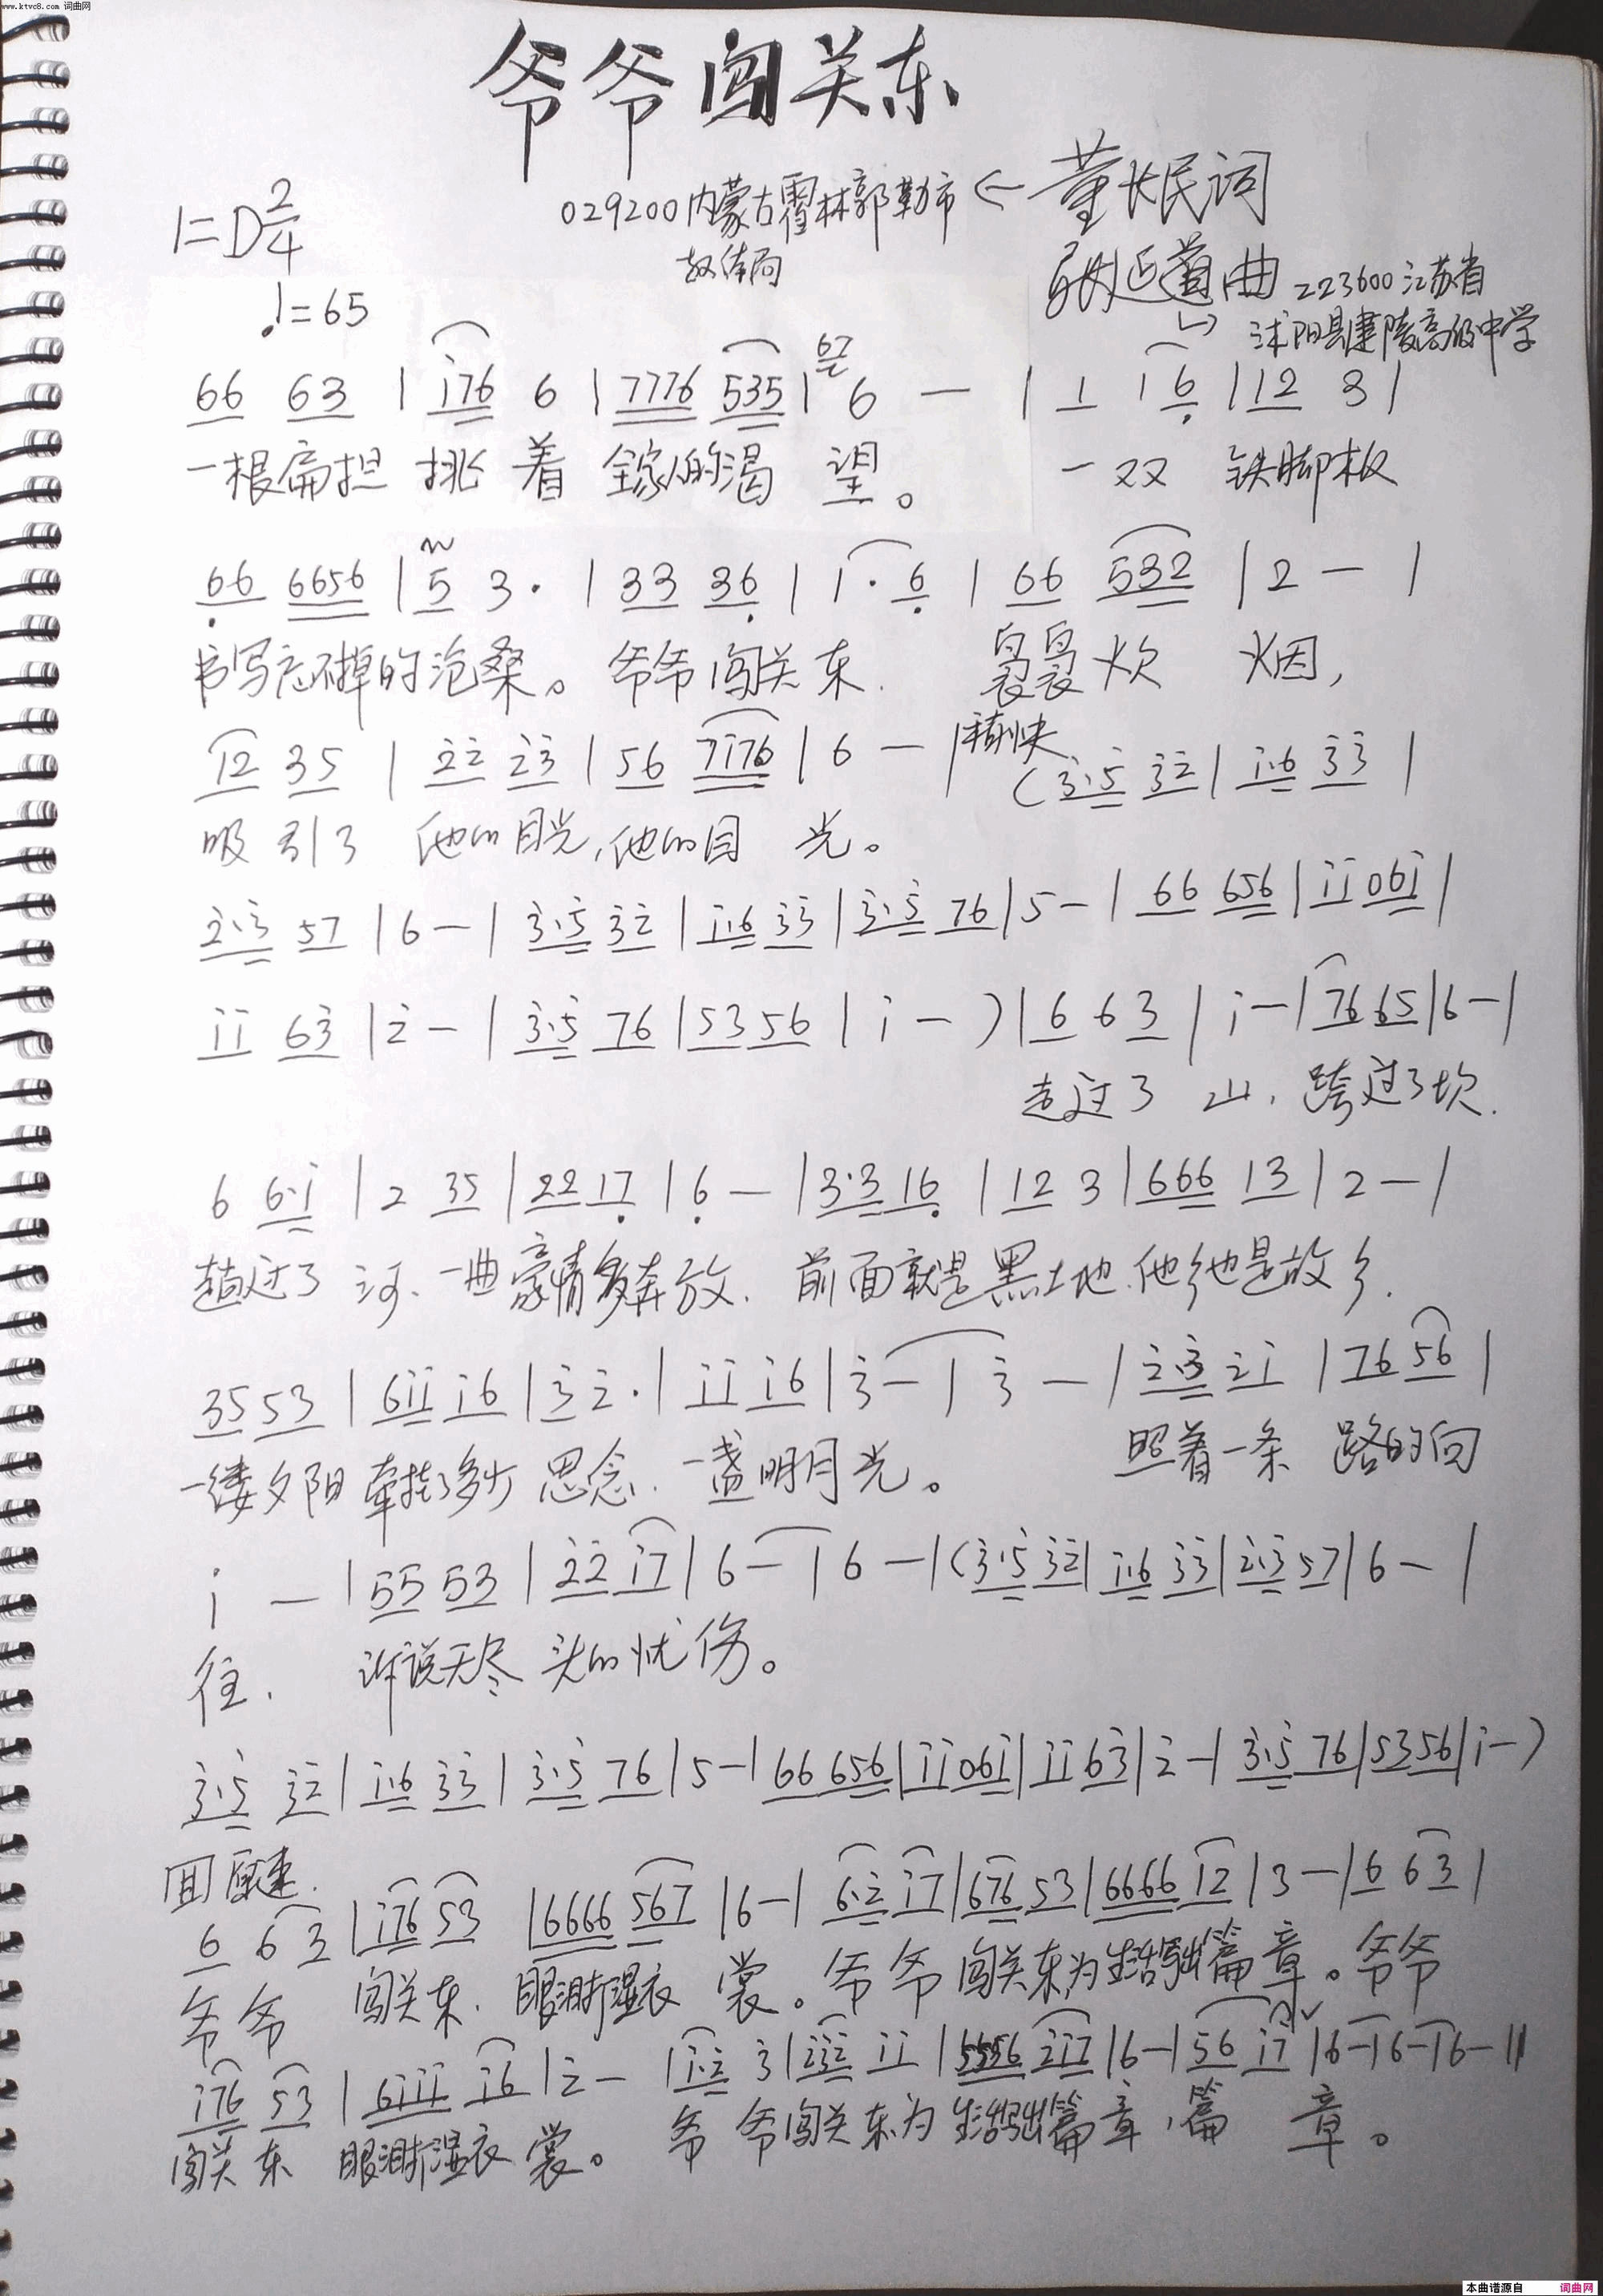 www.ktvc8.com 词曲网
爷爷闯关东
1=D 2/4
029200内蒙古霍林郭勒市 ← 董长民词
教体局
延道曲 223600江苏省
↳ 沭阳县建陵高级中学
♩=65
67
66 63 | i76 6 | 7776 535 | 6 — | 1 1 6 | 12 3 |
一根扁担 挑着 全家人的渴 望。 一双 铁脚板
66 6656 | 5 3· | 33 36 | 1·6 | 66 532 | 2 — |
书写忘不掉的沧桑。爷爷闯关东. 袅袅炊 烟,
12 35 | 22 23 | 56 7i76 | 6 — | 稍快 (3·5 32 | i·6 33 |
吸引了 他的目光,他的目 光。
2·3 57 | 6 — | 3·5 32 | i·6 33 | 3·5 76 | 5 — | 66 656 | ii 06i |
ii 63 | 2 — | 3·5 76 | 53 56 | i — ) | 6 6 3 | i — | 76 65 | 6 — |
走过了 山, 跨过了坎.
6 6·i | 2 35 | 22 17 | 6 — | 3·3 16 | 12 3 | 666 13 | 2 — |
趟过了 河. 一曲豪情多奔放. 前面就是黑土地.他乡也是故乡.
35 53 | 6ii i6 | 3 2· | ii i6 | 3 — | 3 — | 2·3 2i | 76 56 |
一缕夕阳 牵挂了多少 思念. 一盏明月光。 照着一条 路的向
i — | 55 53 | 22 i7 | 6 — | 6 — | (3·5 32 | i·6 33 | 2·3 57 | 6 — |
往. 诉说无尽 头的忧伤。
3·5 32 | i·6 33 | 3·5 76 | 5 — | 66 656 | ii 06i | ii 63 | 2 — | 3·5 76 | 53 56 | i — )
回原速.
6 6 3 | i76 53 | 6666 567 | 6 — | 6·2 i7 | 676 53 | 6666 12 | 3 — | 6 6 3 |
爷爷 闯关东. 眼泪打湿衣 裳。爷爷 闯关东为生活写出篇章。爷爷
i76 53 | 6iii i6 | 2 — | i·2 3 | 232 ii | 5556 2i7 | 6 — | 56 i7 | 6 — | 6 — | 6 — ‖
闯关东 眼泪打湿衣裳。 爷爷闯关东为 生活写出篇章,篇 章。
本曲谱源自 词曲网